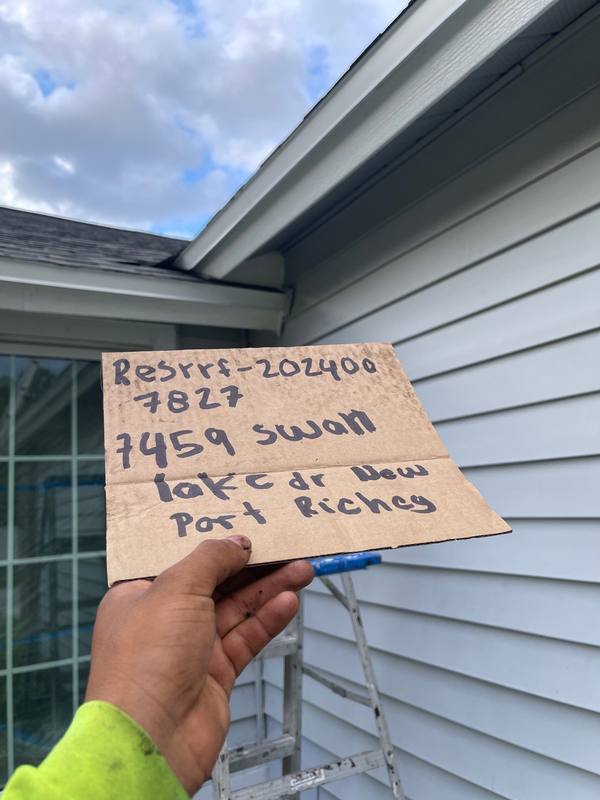 Resrrf-202400
7827
7459 swan
lake dr New
Port Richey